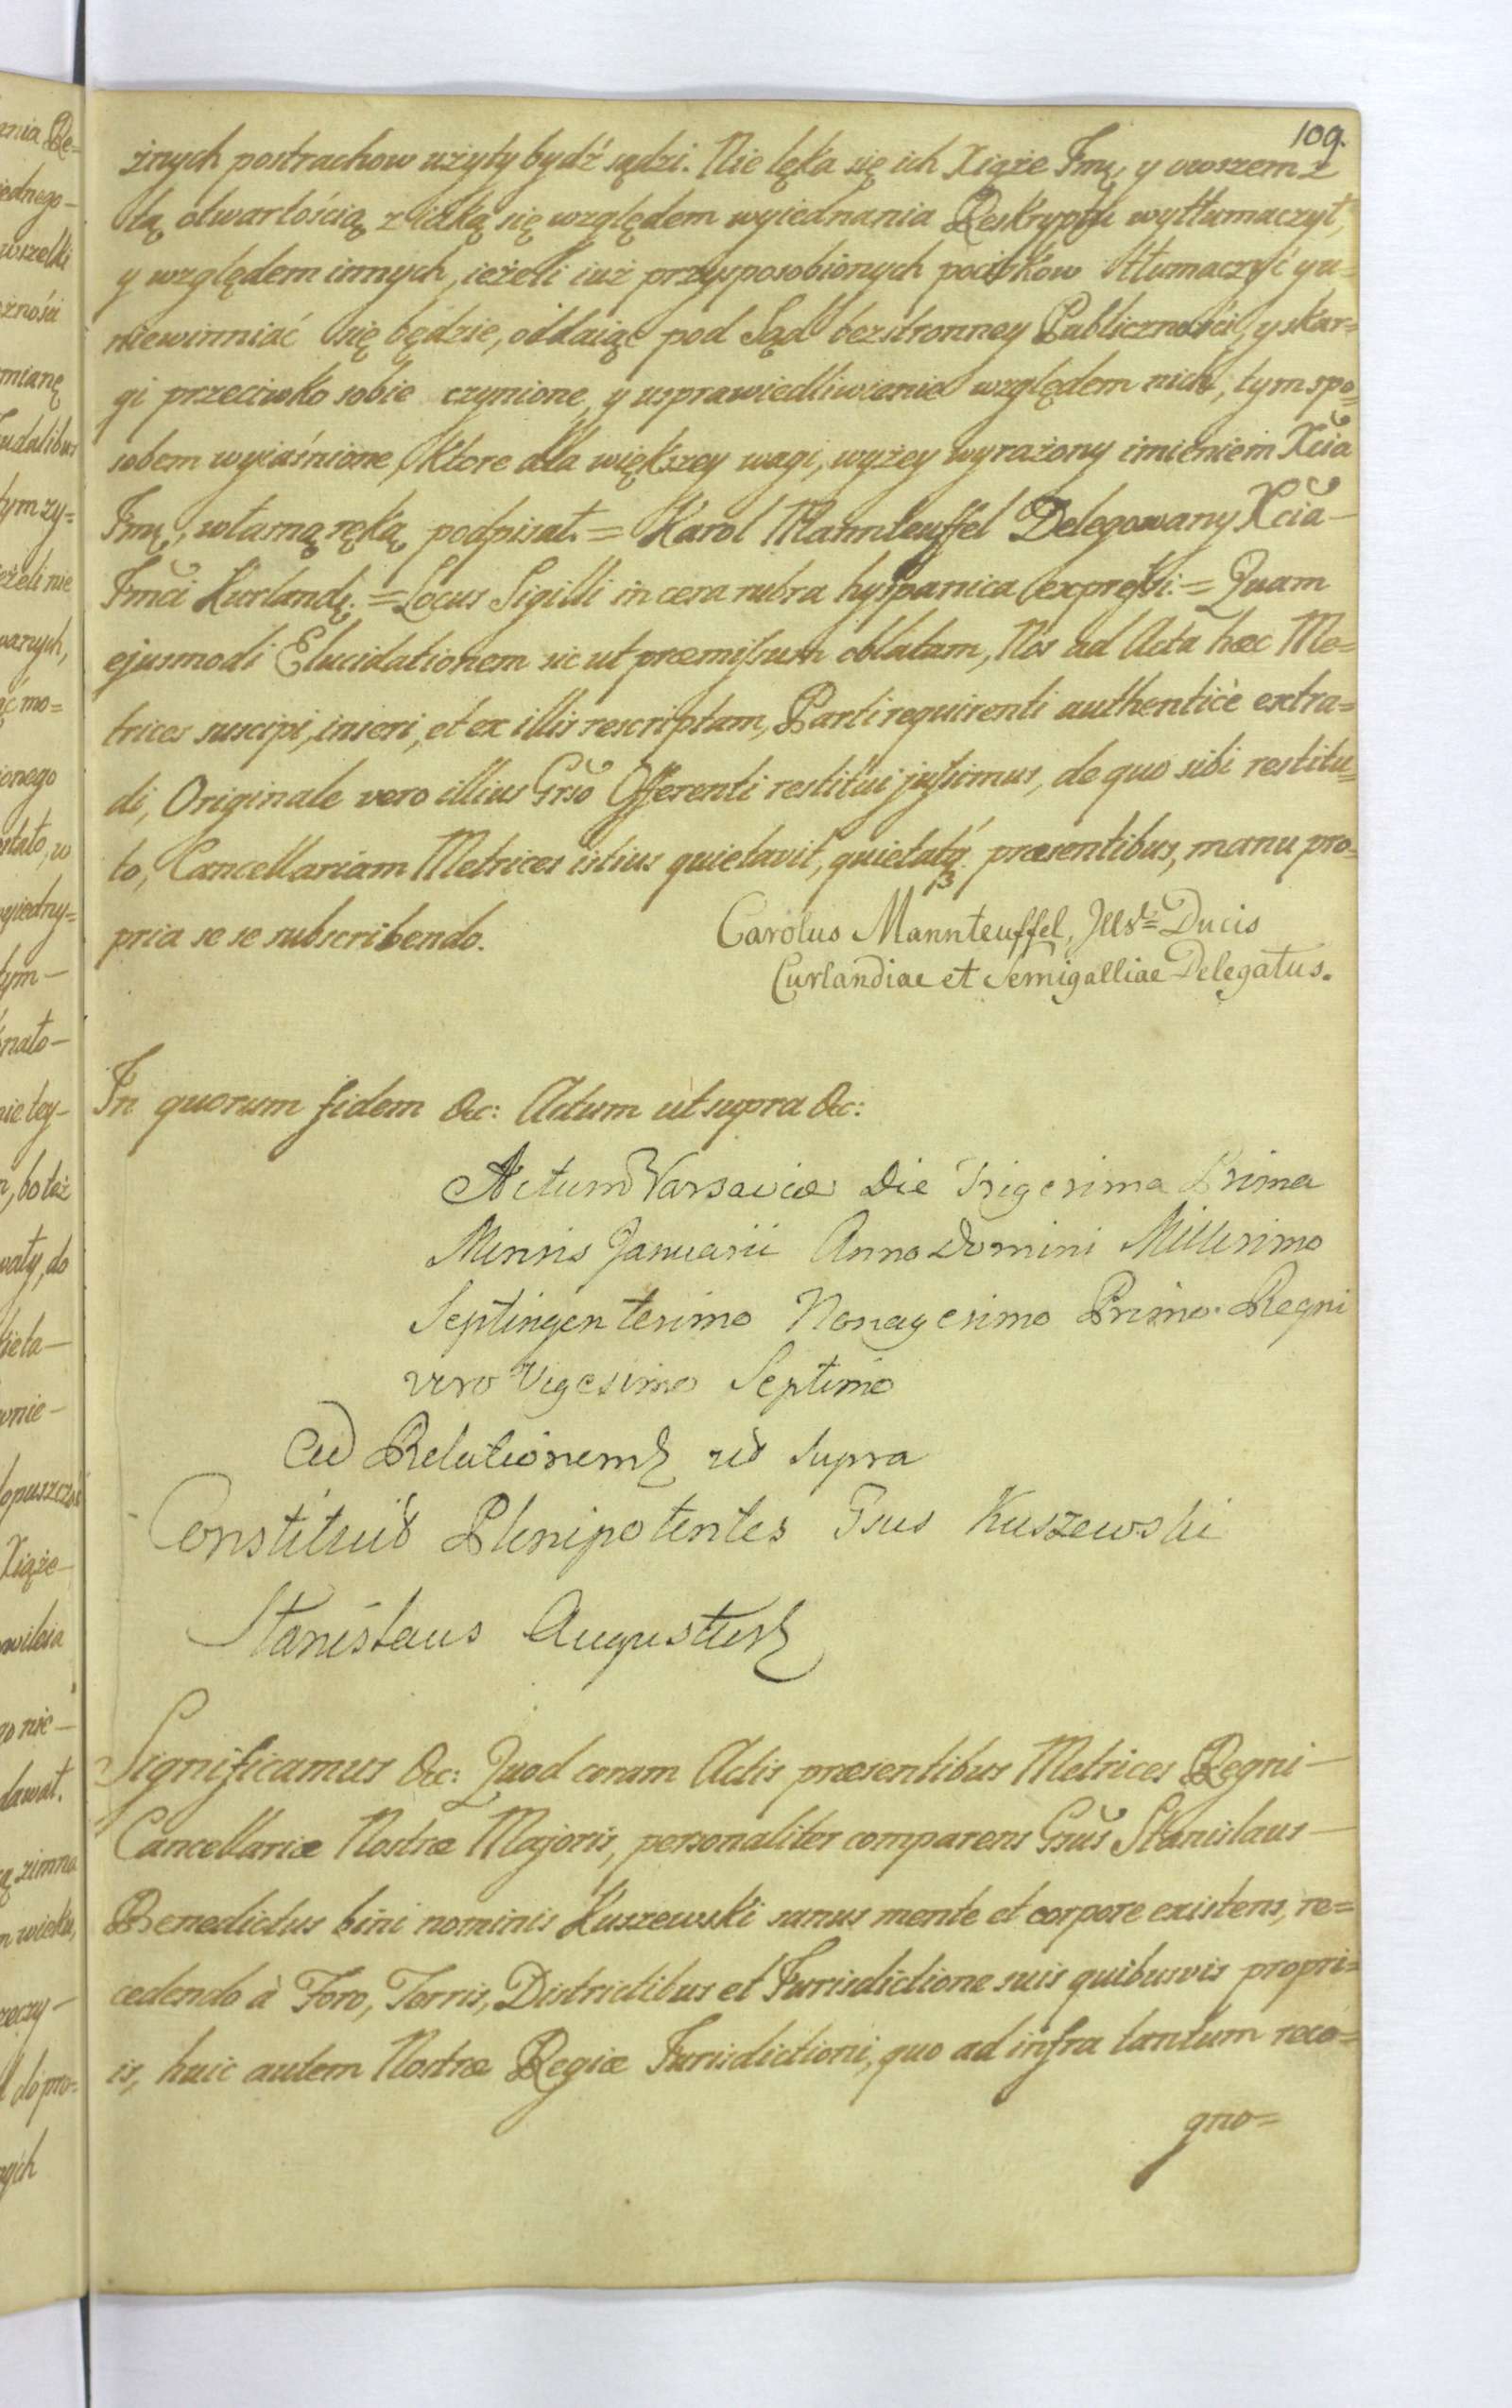 109.
żnych postrachow użyty bydź sądzi. Nie lęka się ich Xiąże Jmć, y owszem z
tą otwartością z iaką się względem wyiednania Reskryptu wytłumaczył,
y względem innych, ieżeli iuż przysposobionych pocisków tłumaczyć y u=
niewinniać się będzie, oddaiąc pod Sąd bezstronney Publiczności, y skar=
gi przeciwko sobie czynione, y usprawiedliwienie względem nich, tym spo=
sobem wyiaśnione, Które dla większey wagi, wyżey wyrażony imieniem Xcia
Jmć, własną ręką podpisał. = Karol Mannteuffel Delegowany Xcia —
Jmci Kurlandę. = Locus Sigilli in cera rubra hyspanica expressi. = Quam
ejusmodi Elucidationem sic ut præmissum oblatam, Nos ad Acta hæc Me=
trices suscipi, inseri, et ex illis rescriptam, Parti requirenti authenticè extra=
di, Originale vero illius Grso Offerenti restitui jussimus, de quo sibi restitu=
to, Cancellariam Metrices istius quietavit, quietatq præsentibus, manu pro=
pria se se subscribendo.
Carolus Mannteuffel, Illst= Ducis
Curlandiae et Semigalliae Delegatus.
In quorum fidem &c: Actum ut supra &c:
Actum Varsaviæ Die Trigesima Prima
Mensis Januarii Anno Domini Millesimo
Septingentesimo Nonagesimo Primo. Regni
vero Vigesimo Septimo
Ad Relationem ut supra
Constituit Plenipotentes Gsus Kuszewski
Stanislaus Augustus
Significamus &c: Quod coram Actis præsentibus Metrices Regni —
Cancellariæ Nostræ Majoris, personaliter comparens Gsus Stanislaus —
Benedictus bini nominis Kuszewski sanus mente et corpore existens, re=
cedendo à Foro, Terris, Districtibus et Jurisdictione suis quibusvis propri=
is, huic autem Nostræ Regiæ Jurisdictioni, quo ad infra tantum reco=
gno=